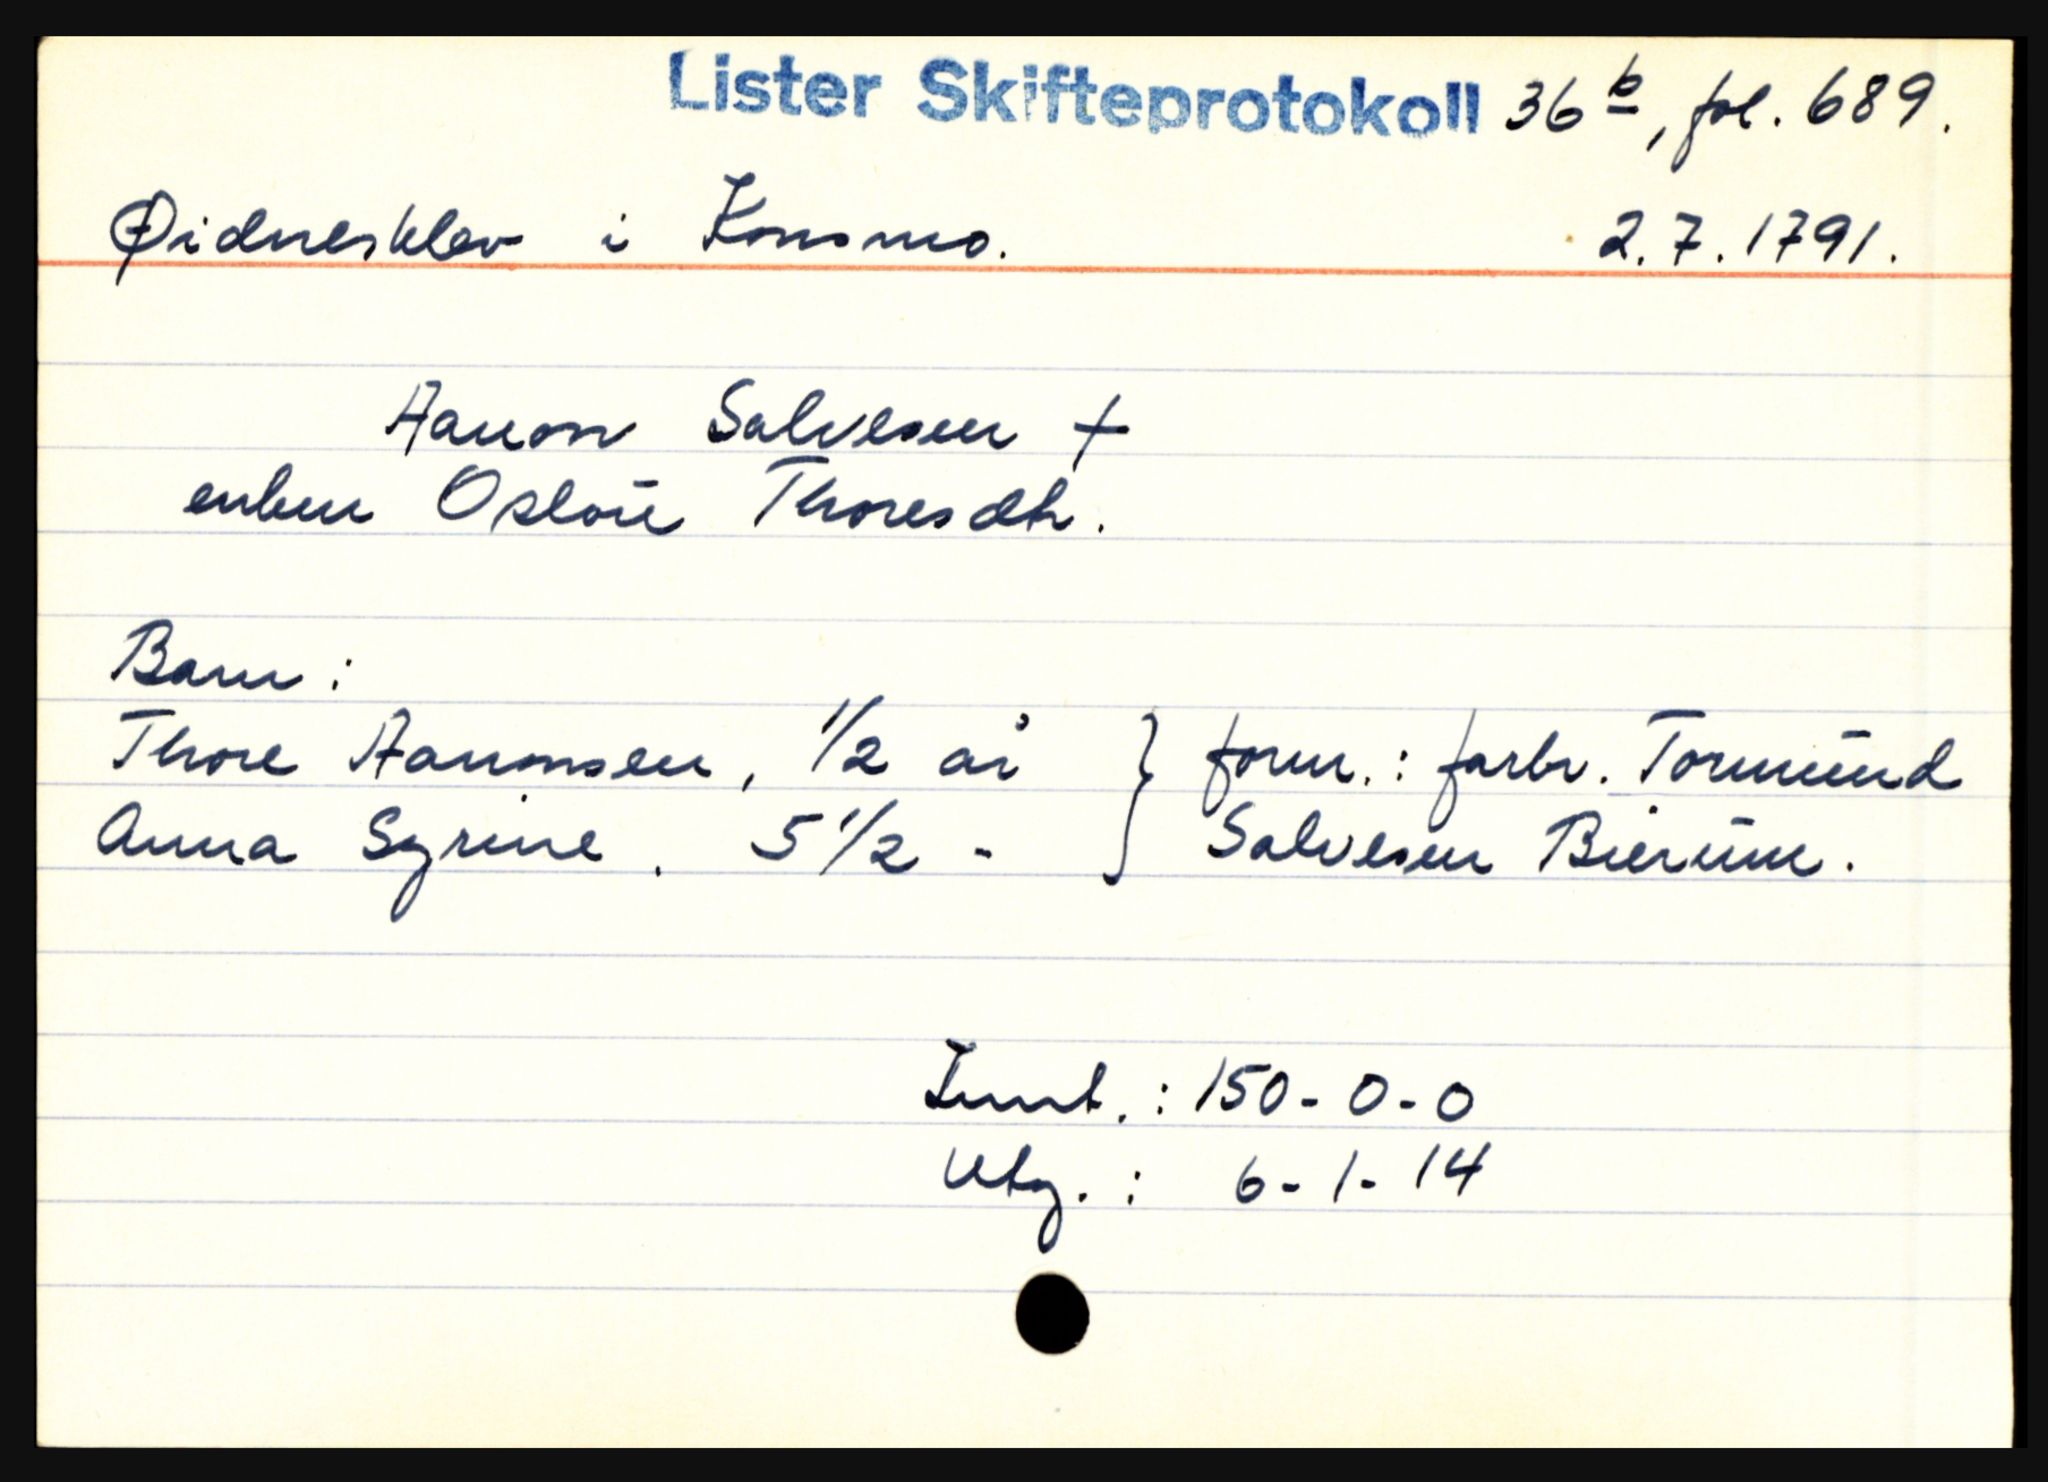 Lister Skifteprotokoll 36 b, fol. 689.
Øidnesklev i Konsmo. 2.7.1791.
Aanon Salvesen +
enken Osloũ Thoresdtr.
Barn:
Thore Aanonsen, 1/2 år } form.: farbr. Tormũnd
Anna Syrine. 5 1/2 - } Salvesen Bierũm.
Innt.: 150-0-0
Utg.: 6-1-14